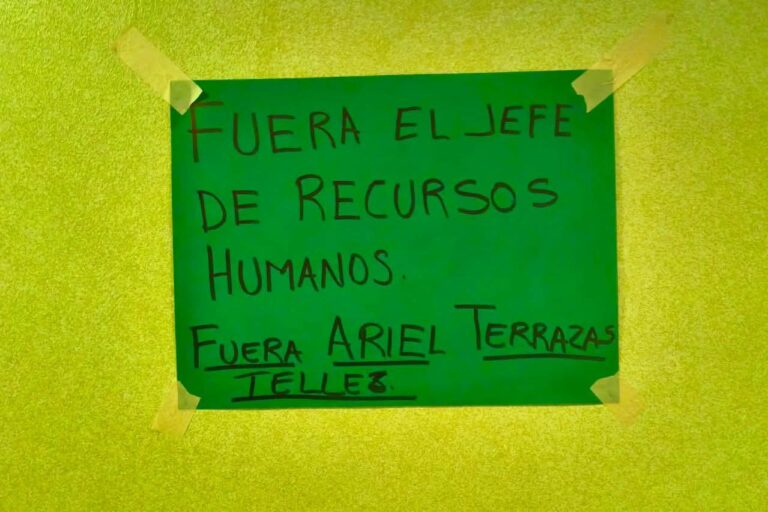 FUERA EL JEFE
DE RECURSOS
HUMANOS.
FUERA ARIEL TERRAZAS
TELLEZ.